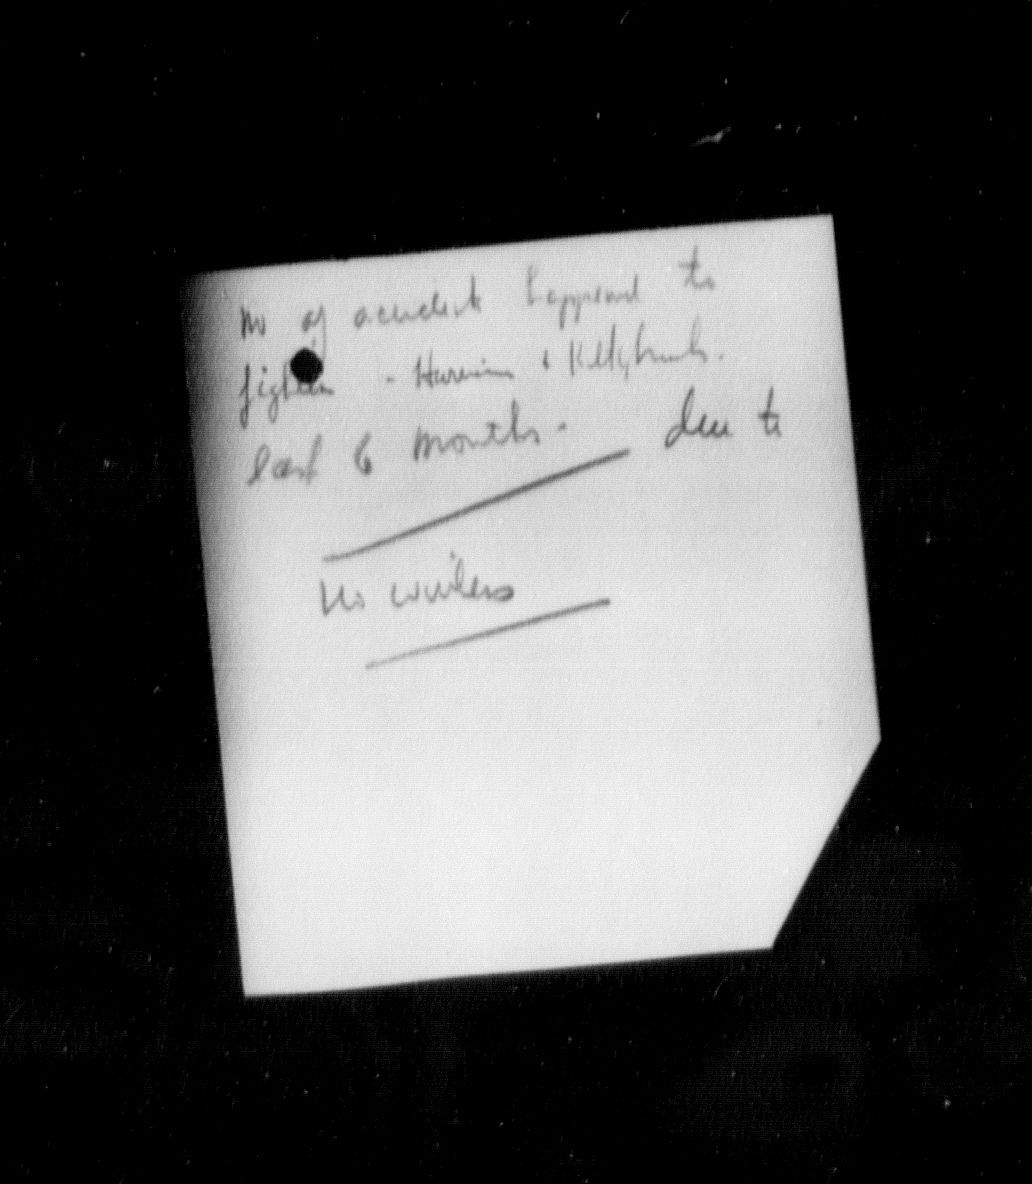 No of accidents happened to
fighters - Hurricane & Kittyhawk.
last 6 months. due to
No winters